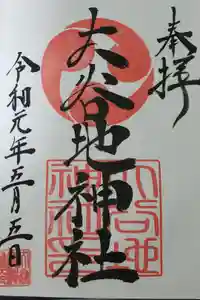 奉拝
大谷地神社
令和元年五月五日
大谷地
神社